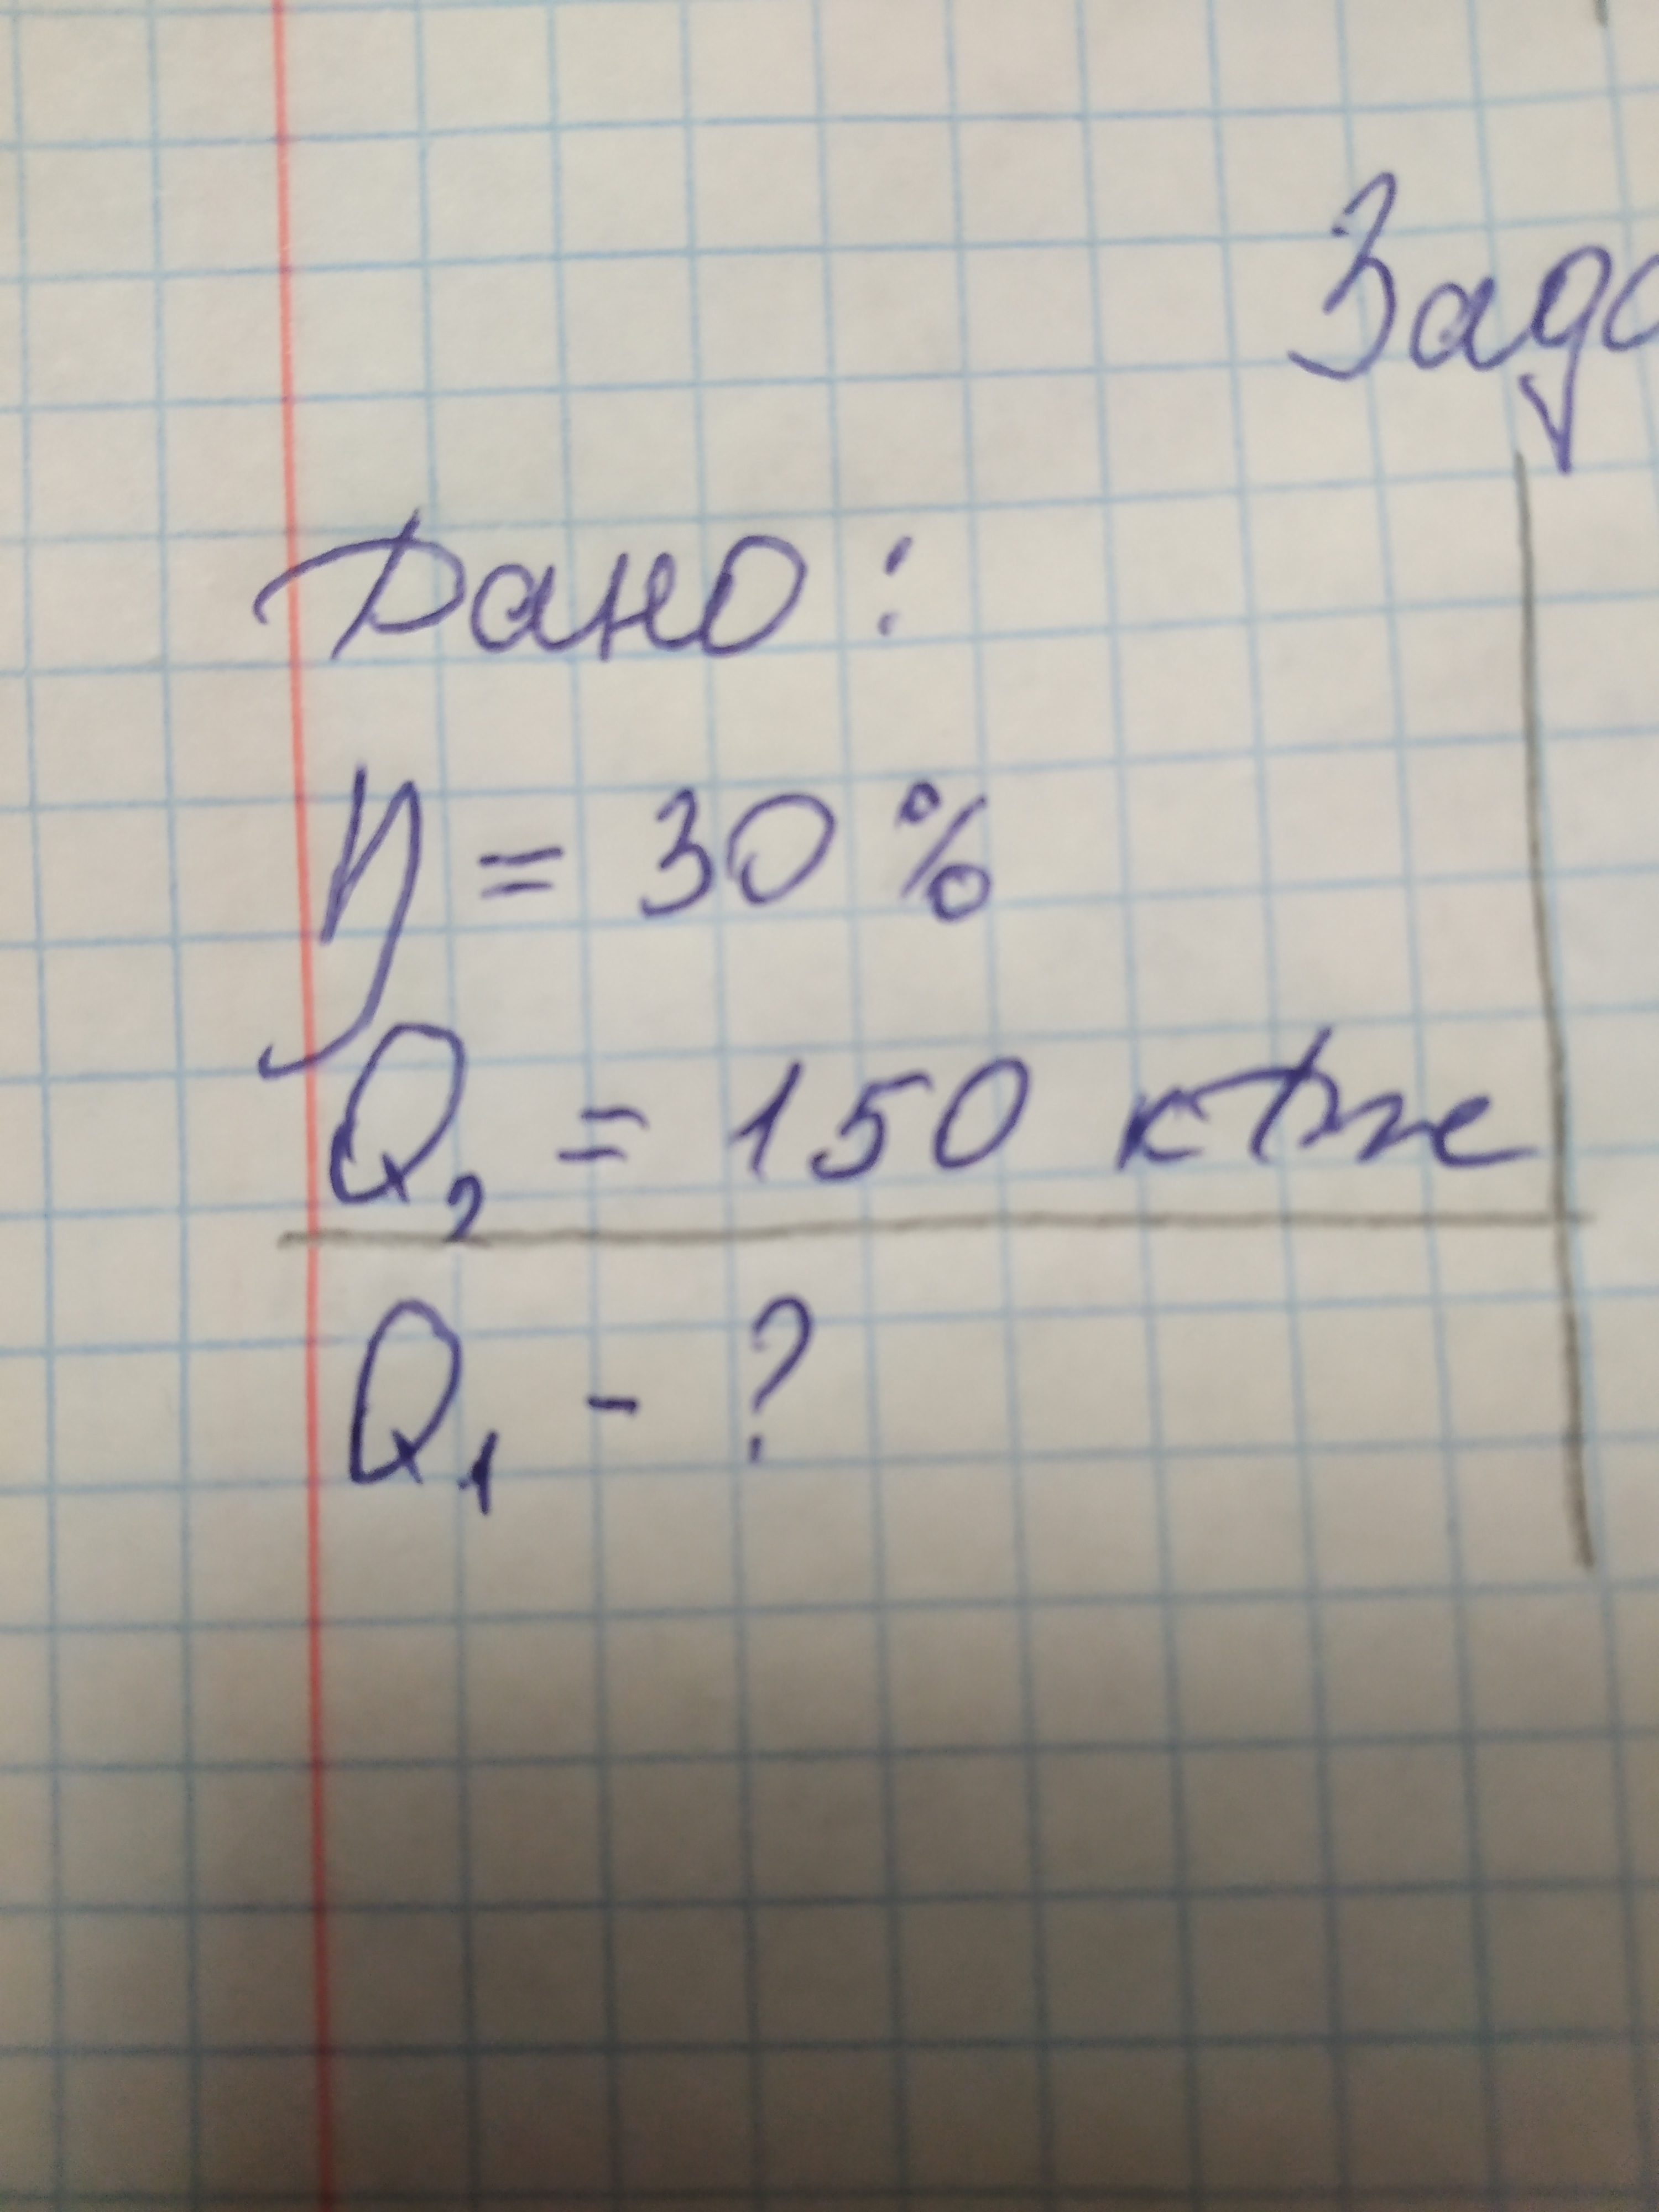 Дано:
η = 30 %
Q₂ = 150 кДж
Q₁ - ?